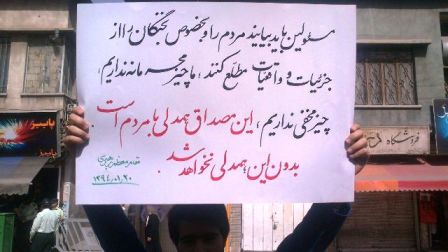 مسئولین باید بیایند مردم را و بخصوص نخبگان را از
جزییات و واقعیّات مطلع کنند؛ ما چیز محرمانه نداریم،
چیز مخفی نداریم، این مصداق همدلی با مردم است.
بدون این، همدلی نخواهد شد.
مقام معظم رهبری
۱۳۹۴/۰۱/۲۰
پاییز
پاییز
فروشگاه